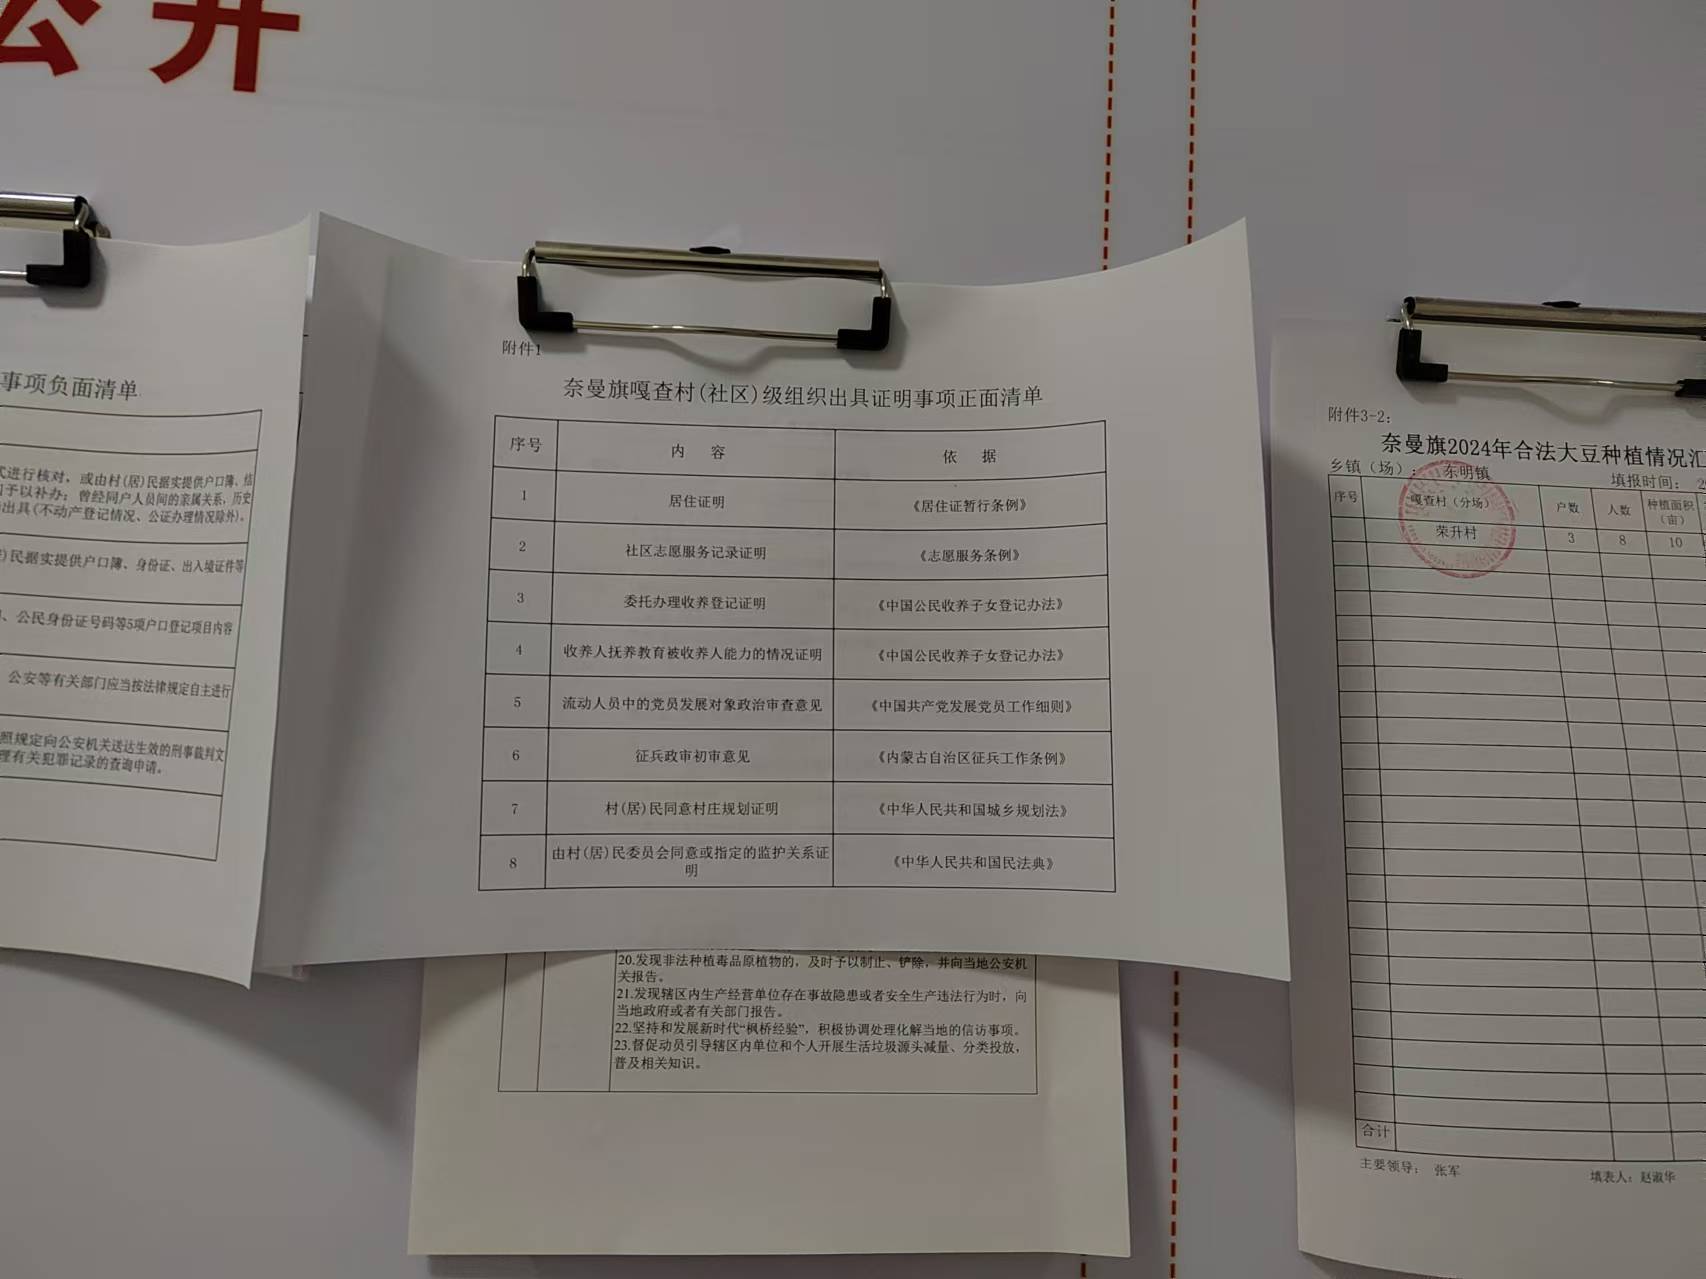 公开
事项负面清单
式进行核对，或由村(居)民据实提供户口簿、结
予以补办；曾经同户人员间的亲属关系，历史
出具(不动产登记情况、公证办理情况除外)。
民据实提供户口簿、身份证、出入境证件等
、公民身份证号码等5项户口登记项目内容
公安等有关部门应当按法律规定自主进行
照规定向公安机关送达生效的刑事裁判文
理有关犯罪记录的查询申请。
附件1
奈曼旗嘎查村(社区)级组织出具证明事项正面清单
序号 内 容 依 据
1 居住证明 《居住证暂行条例》
2 社区志愿服务记录证明 《志愿服务条例》
3 委托办理收养登记证明 《中国公民收养子女登记办法》
4 收养人抚养教育被收养人能力的情况证明 《中国公民收养子女登记办法》
5 流动人员中的党员发展对象政治审查意见 《中国共产党发展党员工作细则》
6 征兵政审初审意见 《内蒙古自治区征兵工作条例》
7 村(居)民同意村庄规划证明 《中华人民共和国城乡规划法》
8 由村(居)民委员会同意或指定的监护关系证明 《中华人民共和国民法典》
20.发现非法种植毒品原植物的，及时予以制止、铲除，并向当地公安机
关报告。
21.发现辖区内生产经营单位存在事故隐患或者安全生产违法行为时，向
当地政府或者有关部门报告。
22.坚持和发展新时代“枫桥经验”，积极协调处理化解当地的信访事项。
23.督促动员引导辖区内单位和个人开展生活垃圾源头减量、分类投放，
普及相关知识。
附件3-2：
奈曼旗2024年合法大豆种植情况汇
乡镇（场）： 东明镇 填报时间： 2
序号 嘎查村（分场） 户数 人数 种植面积（亩）
荣升村 3 8 10
合计
主要领导： 张军 填表人：赵淑华